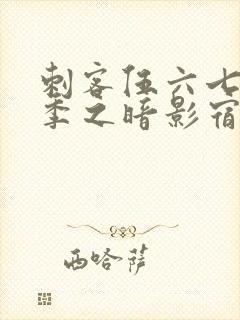 刺客伍六七
季之暗影宿
西哈萨